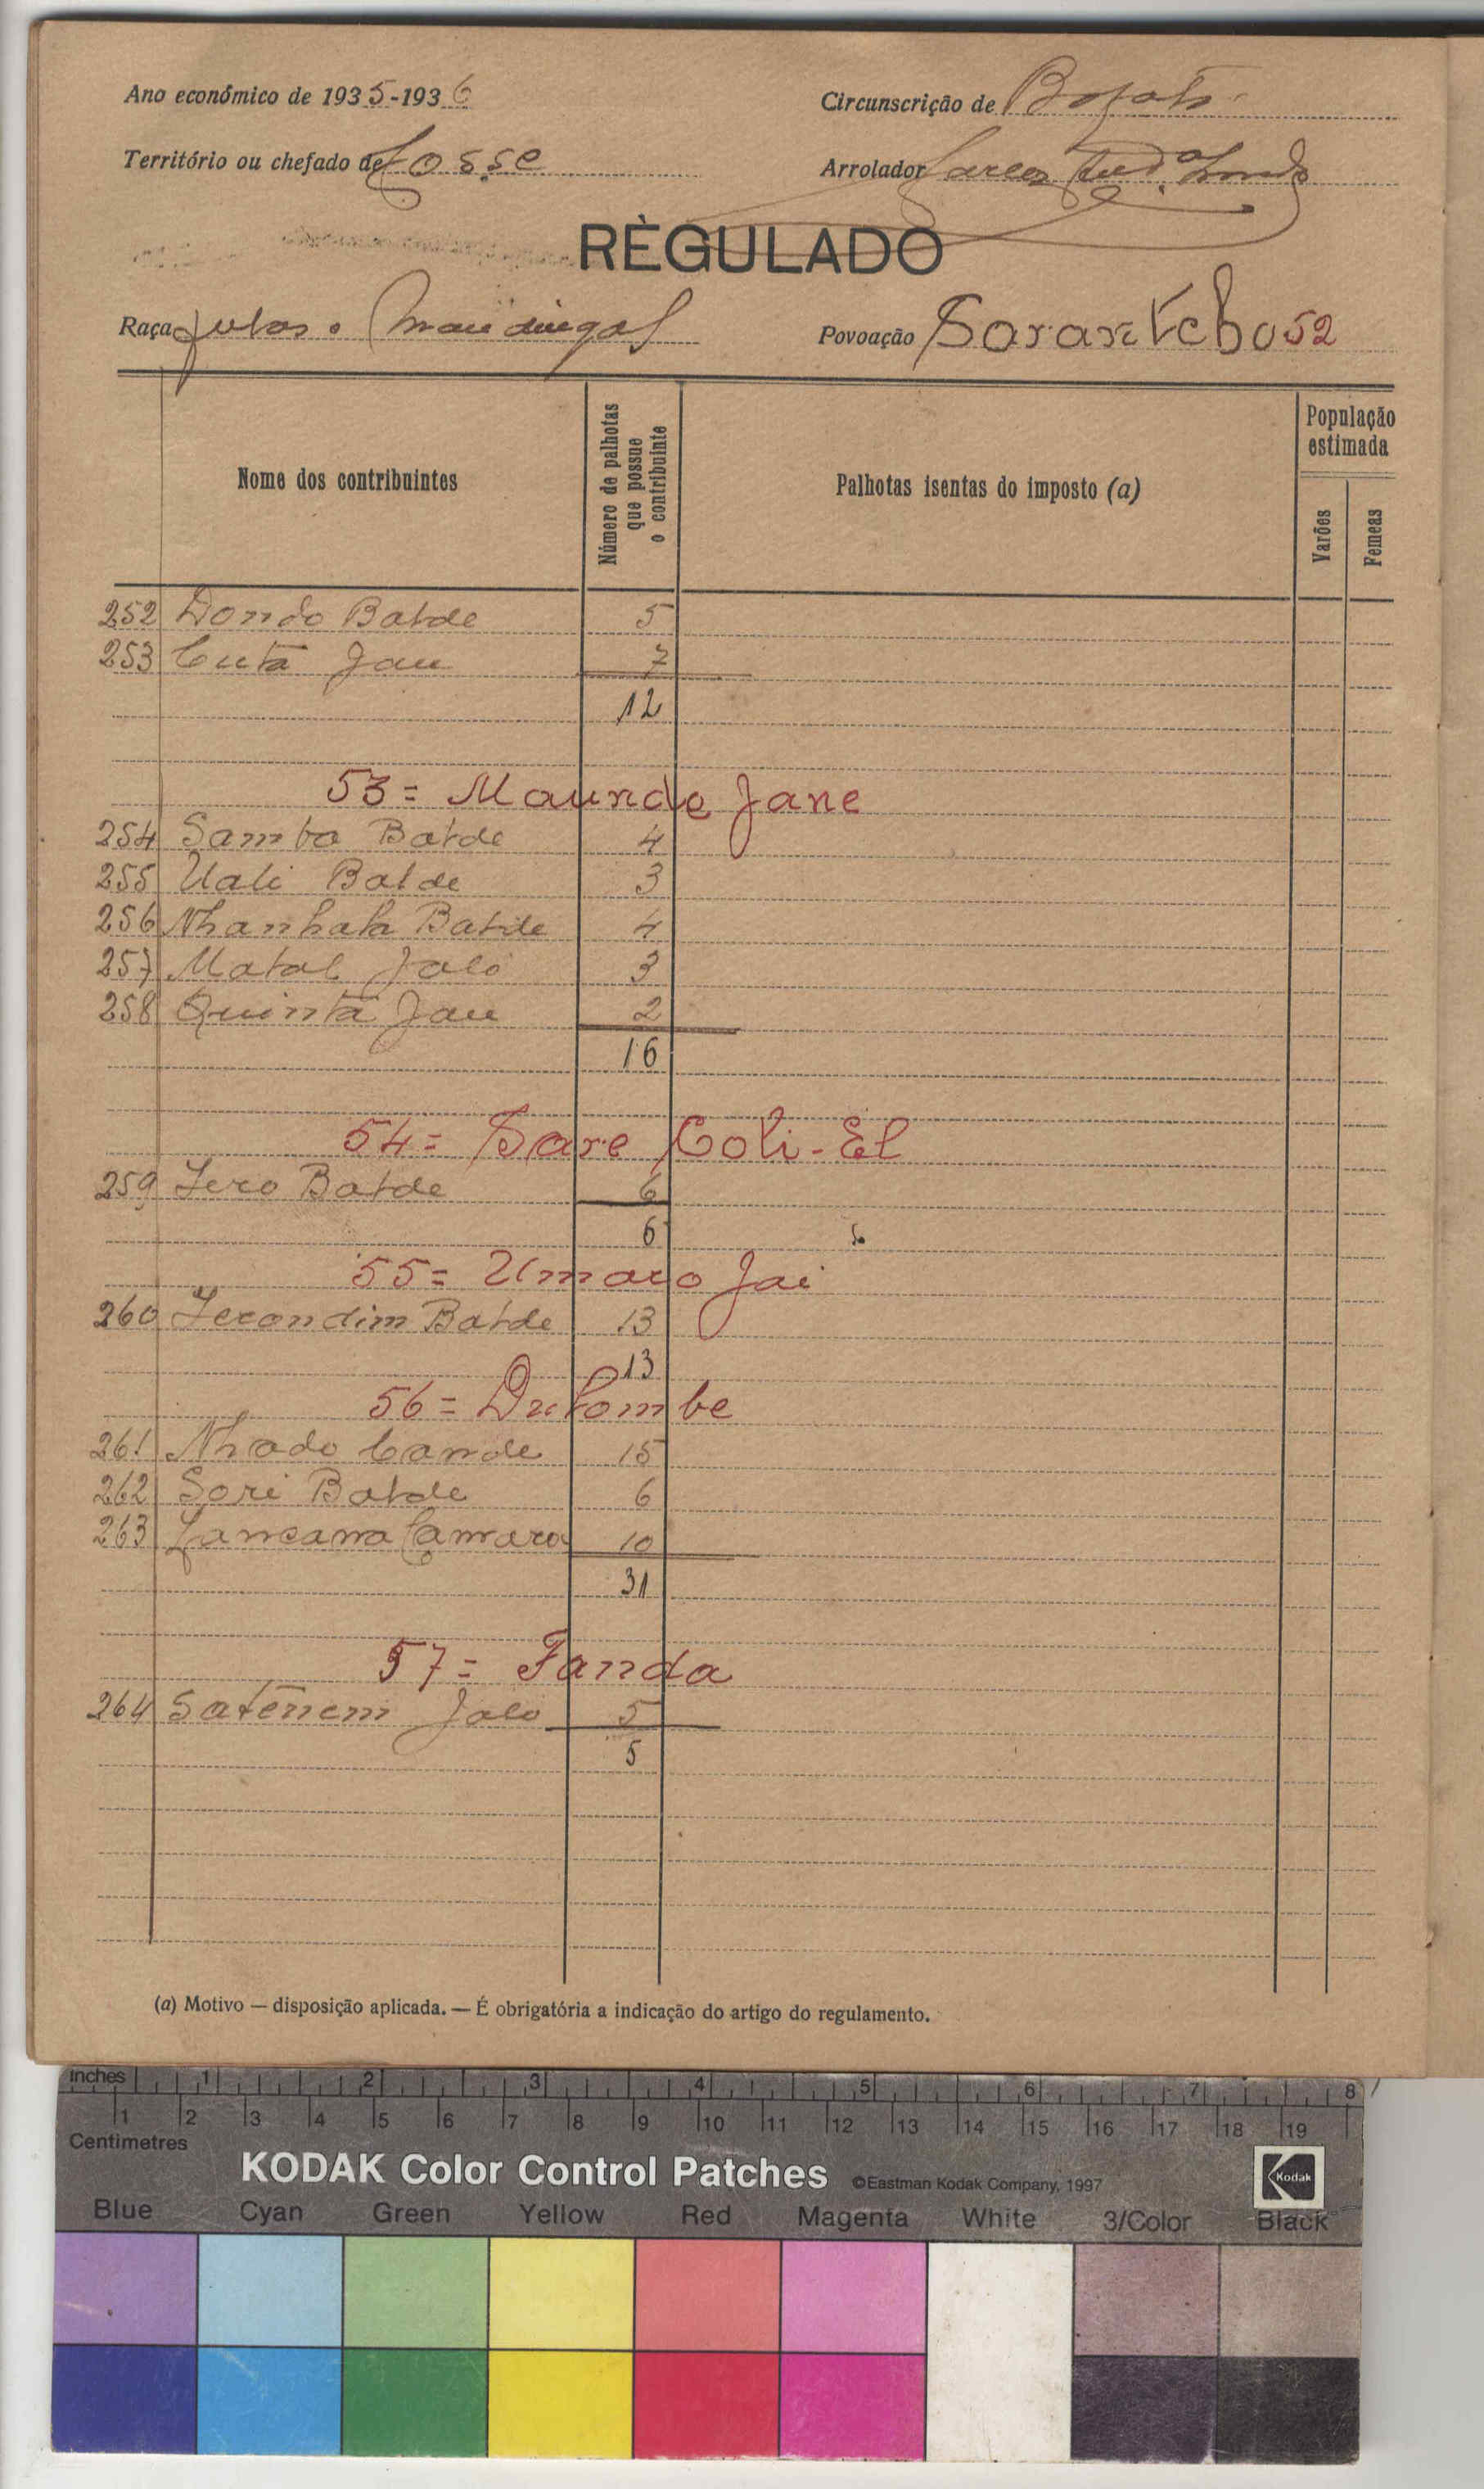 Ano económico de 1935-1936
Circunscrição de Bafatá
Território ou chefado de Cossé
Arrolador
RÈGULADO
Raça fulas e mandingas
Povoação 52
Nome dos contribuintes
Número de palhotas
que possue
o contribuinte
Palhotas isentas do imposto (a)
População
estimada
Varões
Femeas
252 Dondo Balde 5
253 Cutá Jau 7
12
53= Maunde Jane
254 Samba Balde 4
255 Uali Balde 3
256 Balde 4
257 Matal Jaló 3
258 Quintá Jau 2
16
54= Sare Coli-El
259 Balde 6
6
55= Umaro Jai
260 Balde 13
13
56= Dulombe
261 Nhado Cande 15
262 Sori Balde 6
263 Lancana Camara 10
31
57= Fanda
264 Satenem Jaló 5
5
(a) Motivo — disposição aplicada. — É obrigatória a indicação do artigo do regulamento.
Inches 1 2 3 4 5 6 7 8
1 2 3 4 5 6 7 8 9 10 11 12 13 14 15 16 17 18 19
Centimetres
KODAK Color Control Patches ©Eastman Kodak Company, 1997 Kodak
Blue Cyan Green Yellow Red Magenta White 3/Color Black